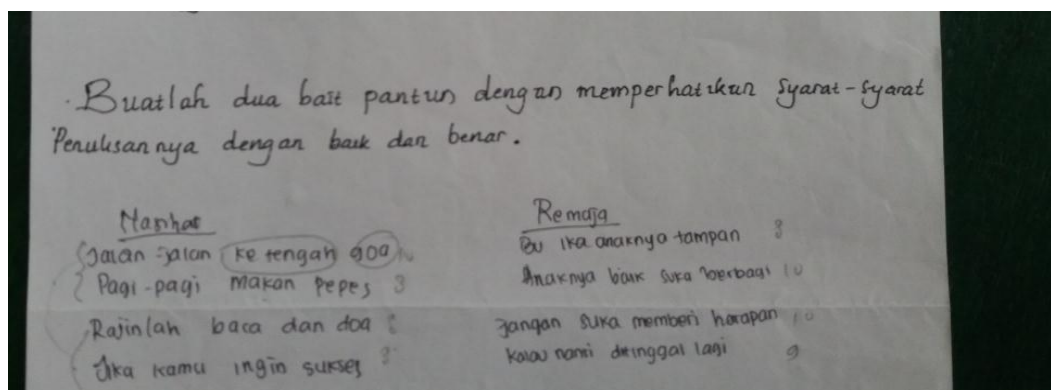 Buatlah dua bait pantun dengan memperhatikan syarat-syarat
Penulisannya dengan baik dan benar.
Nasihat
Jalan-jalan ke tengah goa
Pagi-pagi makan pepes 8
Rajinlah baca dan doa 8
Jika kamu ingin sukses 8
Remaja
Bu Ika anaknya tampan 8
Anaknya baik suka berbagi 10
Jangan suka memberi harapan 10
Kalau nanti ditinggal lagi 9